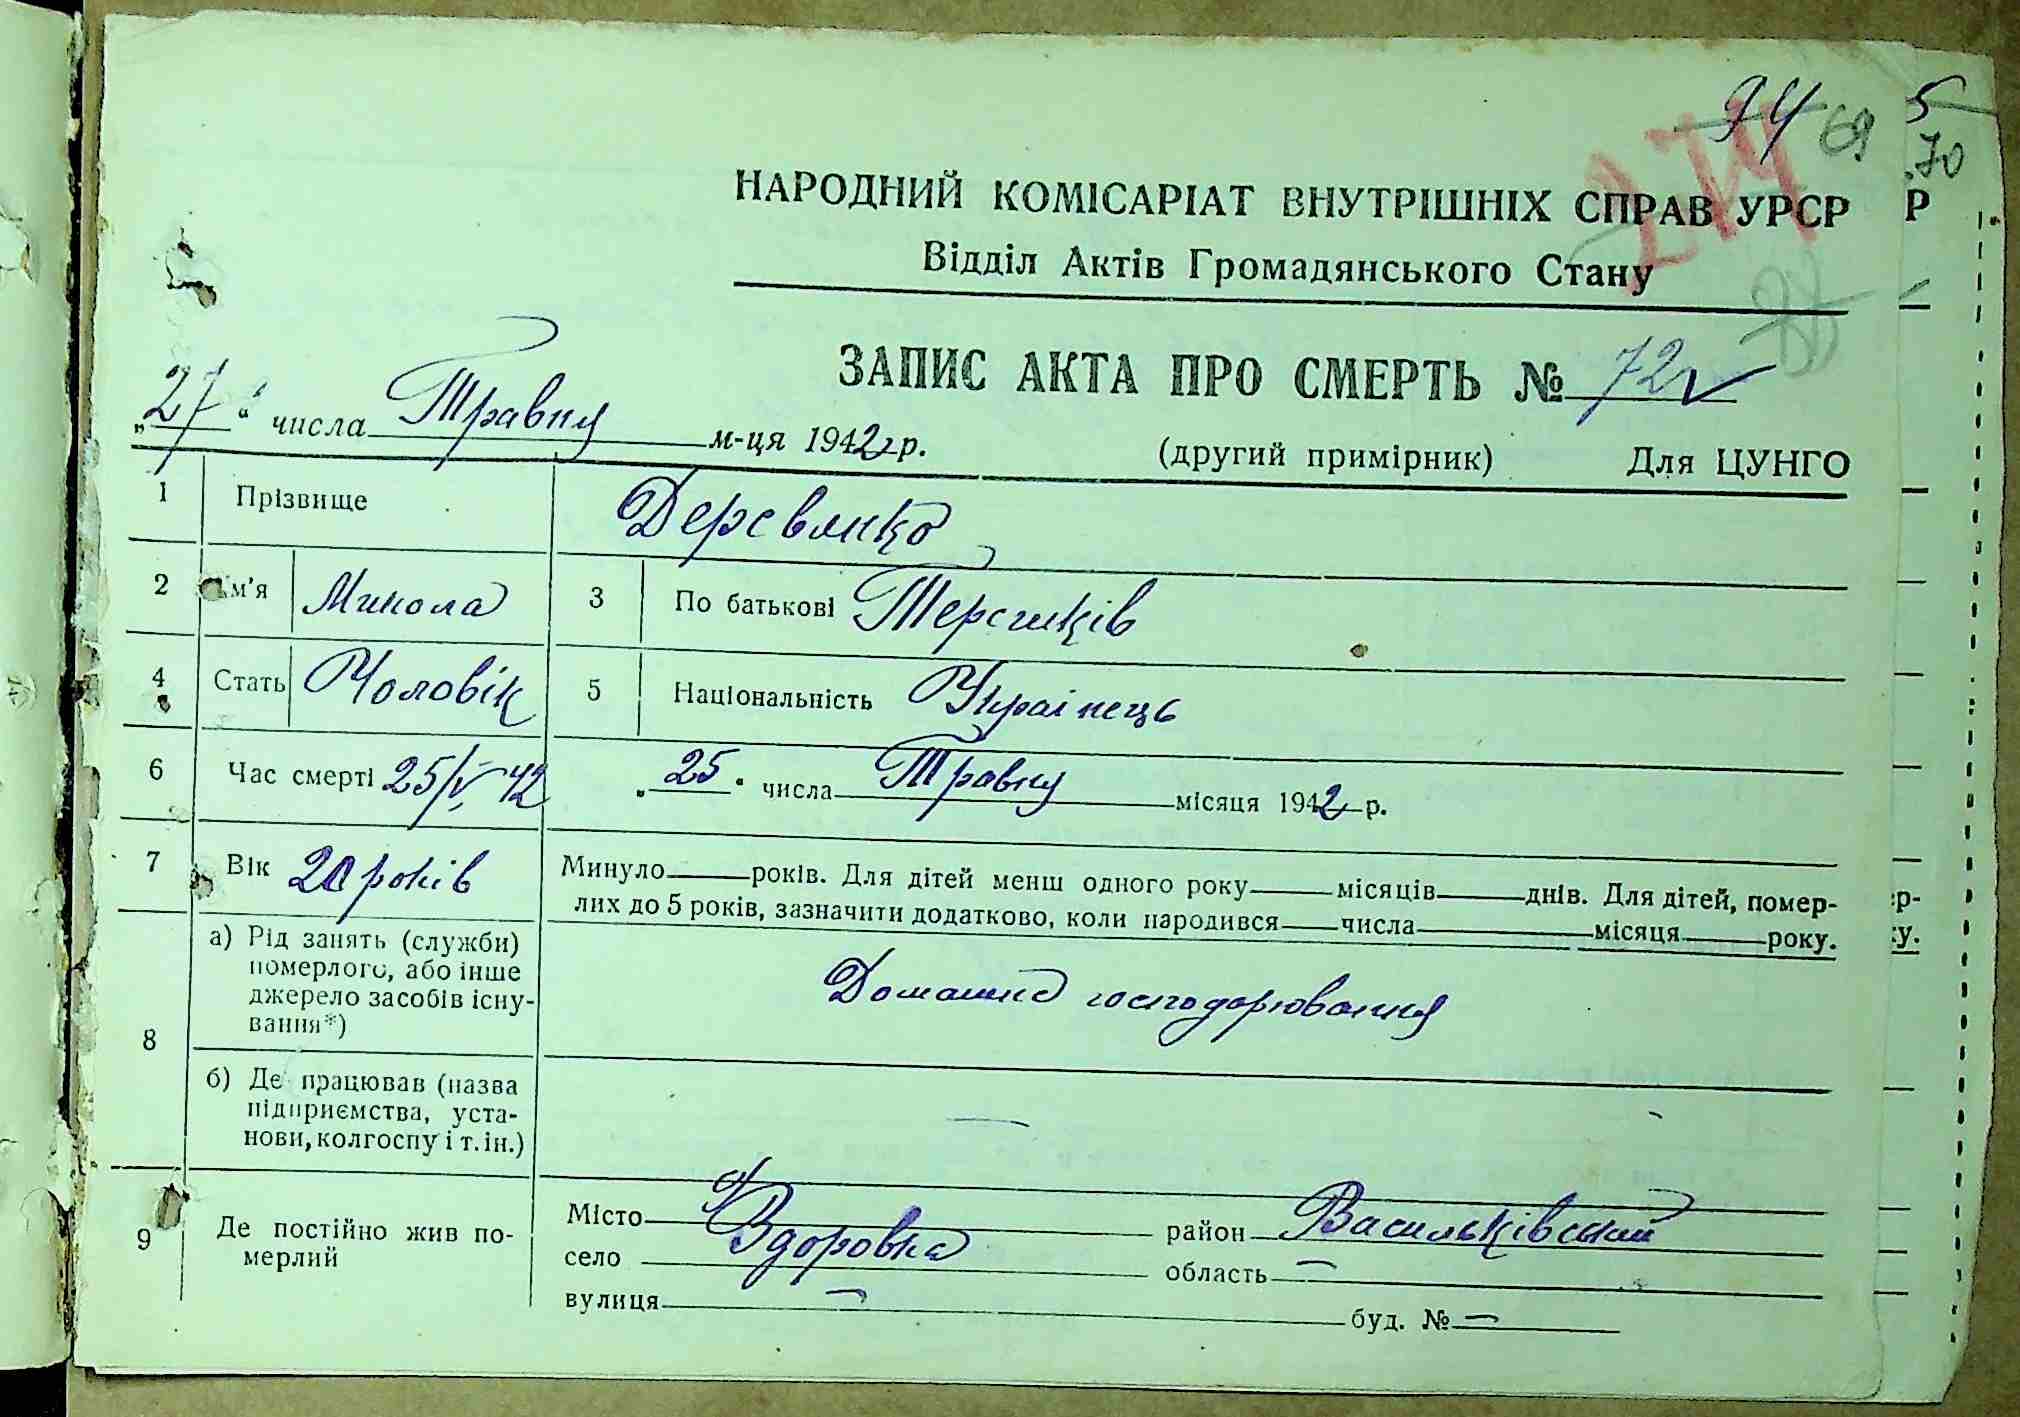 94 69 5
274 70
НАРОДНИЙ КОМІСАРІАТ ВНУТРІШНІХ СПРАВ УРСР Р
Відділ Актів Громадянського Стану
ЗАПИС АКТА ПРО СМЕРТЬ № 72
„27“ числа Травня м-ця 1942 р. (другий примірник) Для ЦУНГО
1 Прізвище Деревянко
2 Ім'я Микола 3 По батькові
4 Стать Чоловік 5 Національність Українець
6 Час смерті 25/V 42 „25“ числа Травня місяця 1942 р.
7 Вік 20 років Минуло років. Для дітей менш одного року місяців днів. Для дітей, помер- ер-
лих до 5 років, зазначити додатково, коли народився числа місяця року. ку.
8 а) Рід занять (служби)
померлого, або інше
джерело засобів існу-
вання*)
Домашнє господорювання
б) Де працював (назва
підприємства, уста-
нови, колгоспу і т. ін.)
—
9 Де постійно жив по-
мерлий
Місто район Васильківський
село Здоровка область —
вулиця — буд. № —